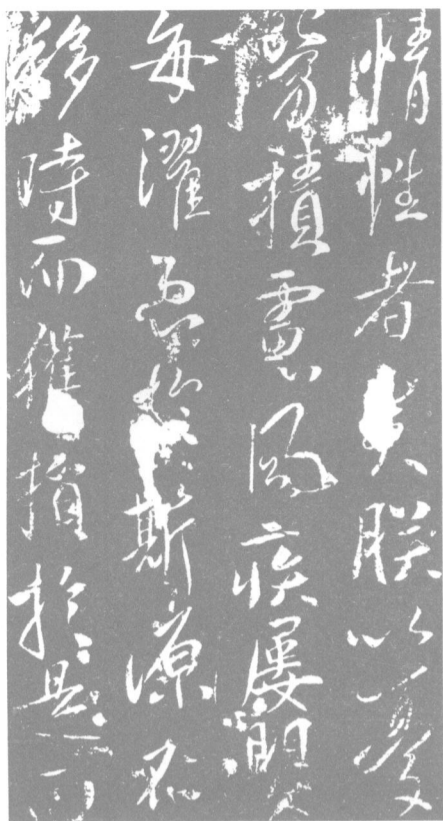 情性者矣朕以憂
勞積慮風疾屢嬰
每濯患於斯源不
移時而獲損於是面